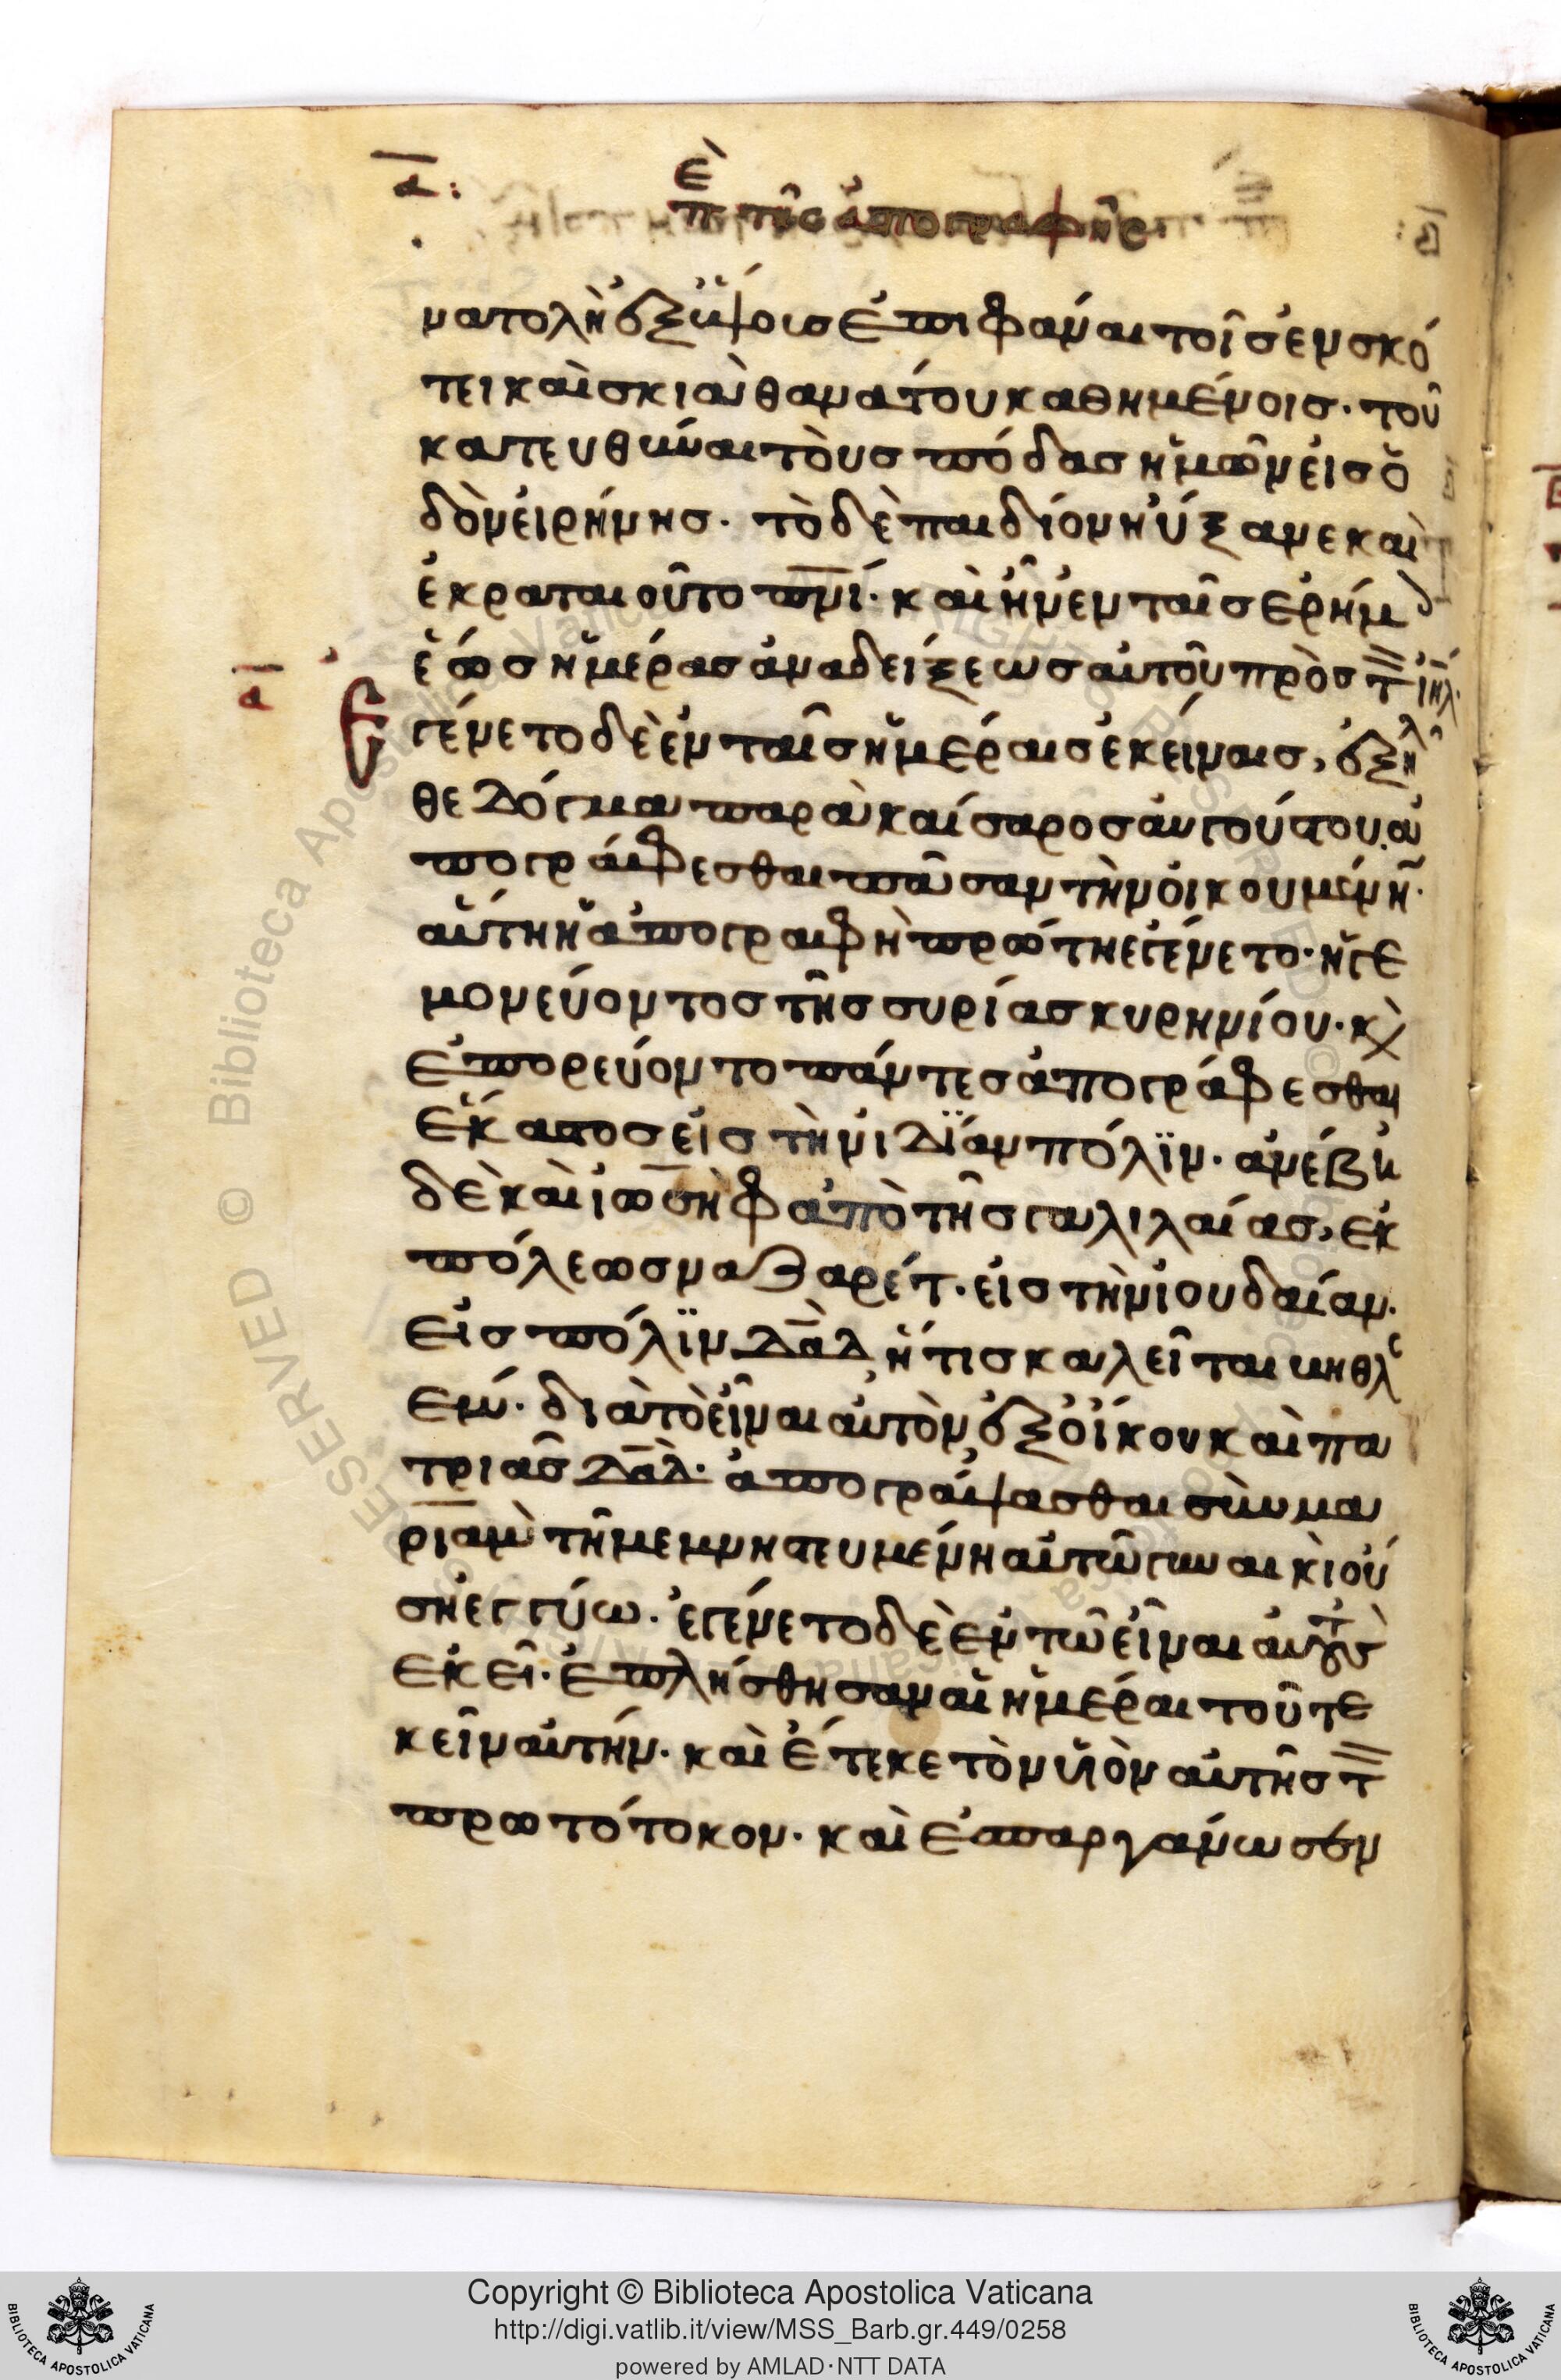 α:
πὲ τῆς ἀπογραφῆς
νατολὴ ἐξ ὕψους ἐπιφάναι τοῖς ἐν σκό
τει καὶ σκιᾶ θανάτου καθημένοις· τοῦ
κατευθύναι τοὺς πόδας ἡμῶν εἰς ὁ
δὸν εἰρήνης· τὸ δὲ παιδίον ηὔξανε καὶ
ἐκραταιοῦτο πνι· καὶ ἦν ἐν ταῖς ἐρήμ
ἕως ἡμέρας ἀναδείξεως αὐτοῦ πρὸς τ ιηλ·
α Ἐγένετο δὲ ἐν ταῖς ἡμέραις ἐκειναις, ἐξῆλ
θε δόγμα παρὰ καίσαρος αυγούστου ἀ
πογράφεσθαι πᾶσαν τὴν οἰκουμένη·
αὕτη ἡ ἀπογραφὴ πρώτη ἐγένετο· ἡγε
μονεύοντος τῆς συρίας κυρηνίου· κ
ἐπορεύοντο πάντες ἀπογράφεσθαι
ἕκαστος εἰς τὴν ἰδίαν πόλϊν· ἀνέβη
δὲ καὶ ἰωσὴφ ἀπὸ τῆς γαλιλαίας, ἐκ
πόλεως ναζαρέτ· εἰς τὴν ἰουδαίαν·
εἰς πόλϊν δαδ ἥτις καλεῖται βηθλ
εέμ· διὰ τὸ εἶναι αὐτὸν ἐξ οἴκου καὶ πα
τριᾶς δαδ· ἀπογράψασθαι σὺν μα
ριὰμ τῆ μεμνηστευμένη αὐτῶ γυναικὶ οὔ
ση ἐγγύω· ἐγένετο δὲ ἐν τῶ εἶναι αὐτοὺς
ἐκεῖ· ἐπλήσθησαν αἱ ἡμέραι τοῦ τε
κεῖν αὐτήν· καὶ ἔτεκε τὸν υἱὸν αὐτῆς τ
πρωτότοκον· καὶ ἐσπαργάνωσεν
Copyright © Biblioteca Apostolica Vaticana
http://digi.vatlib.it/view/MSS_Barb.gr.449/0258
powered by AMLAD·NTT DATA